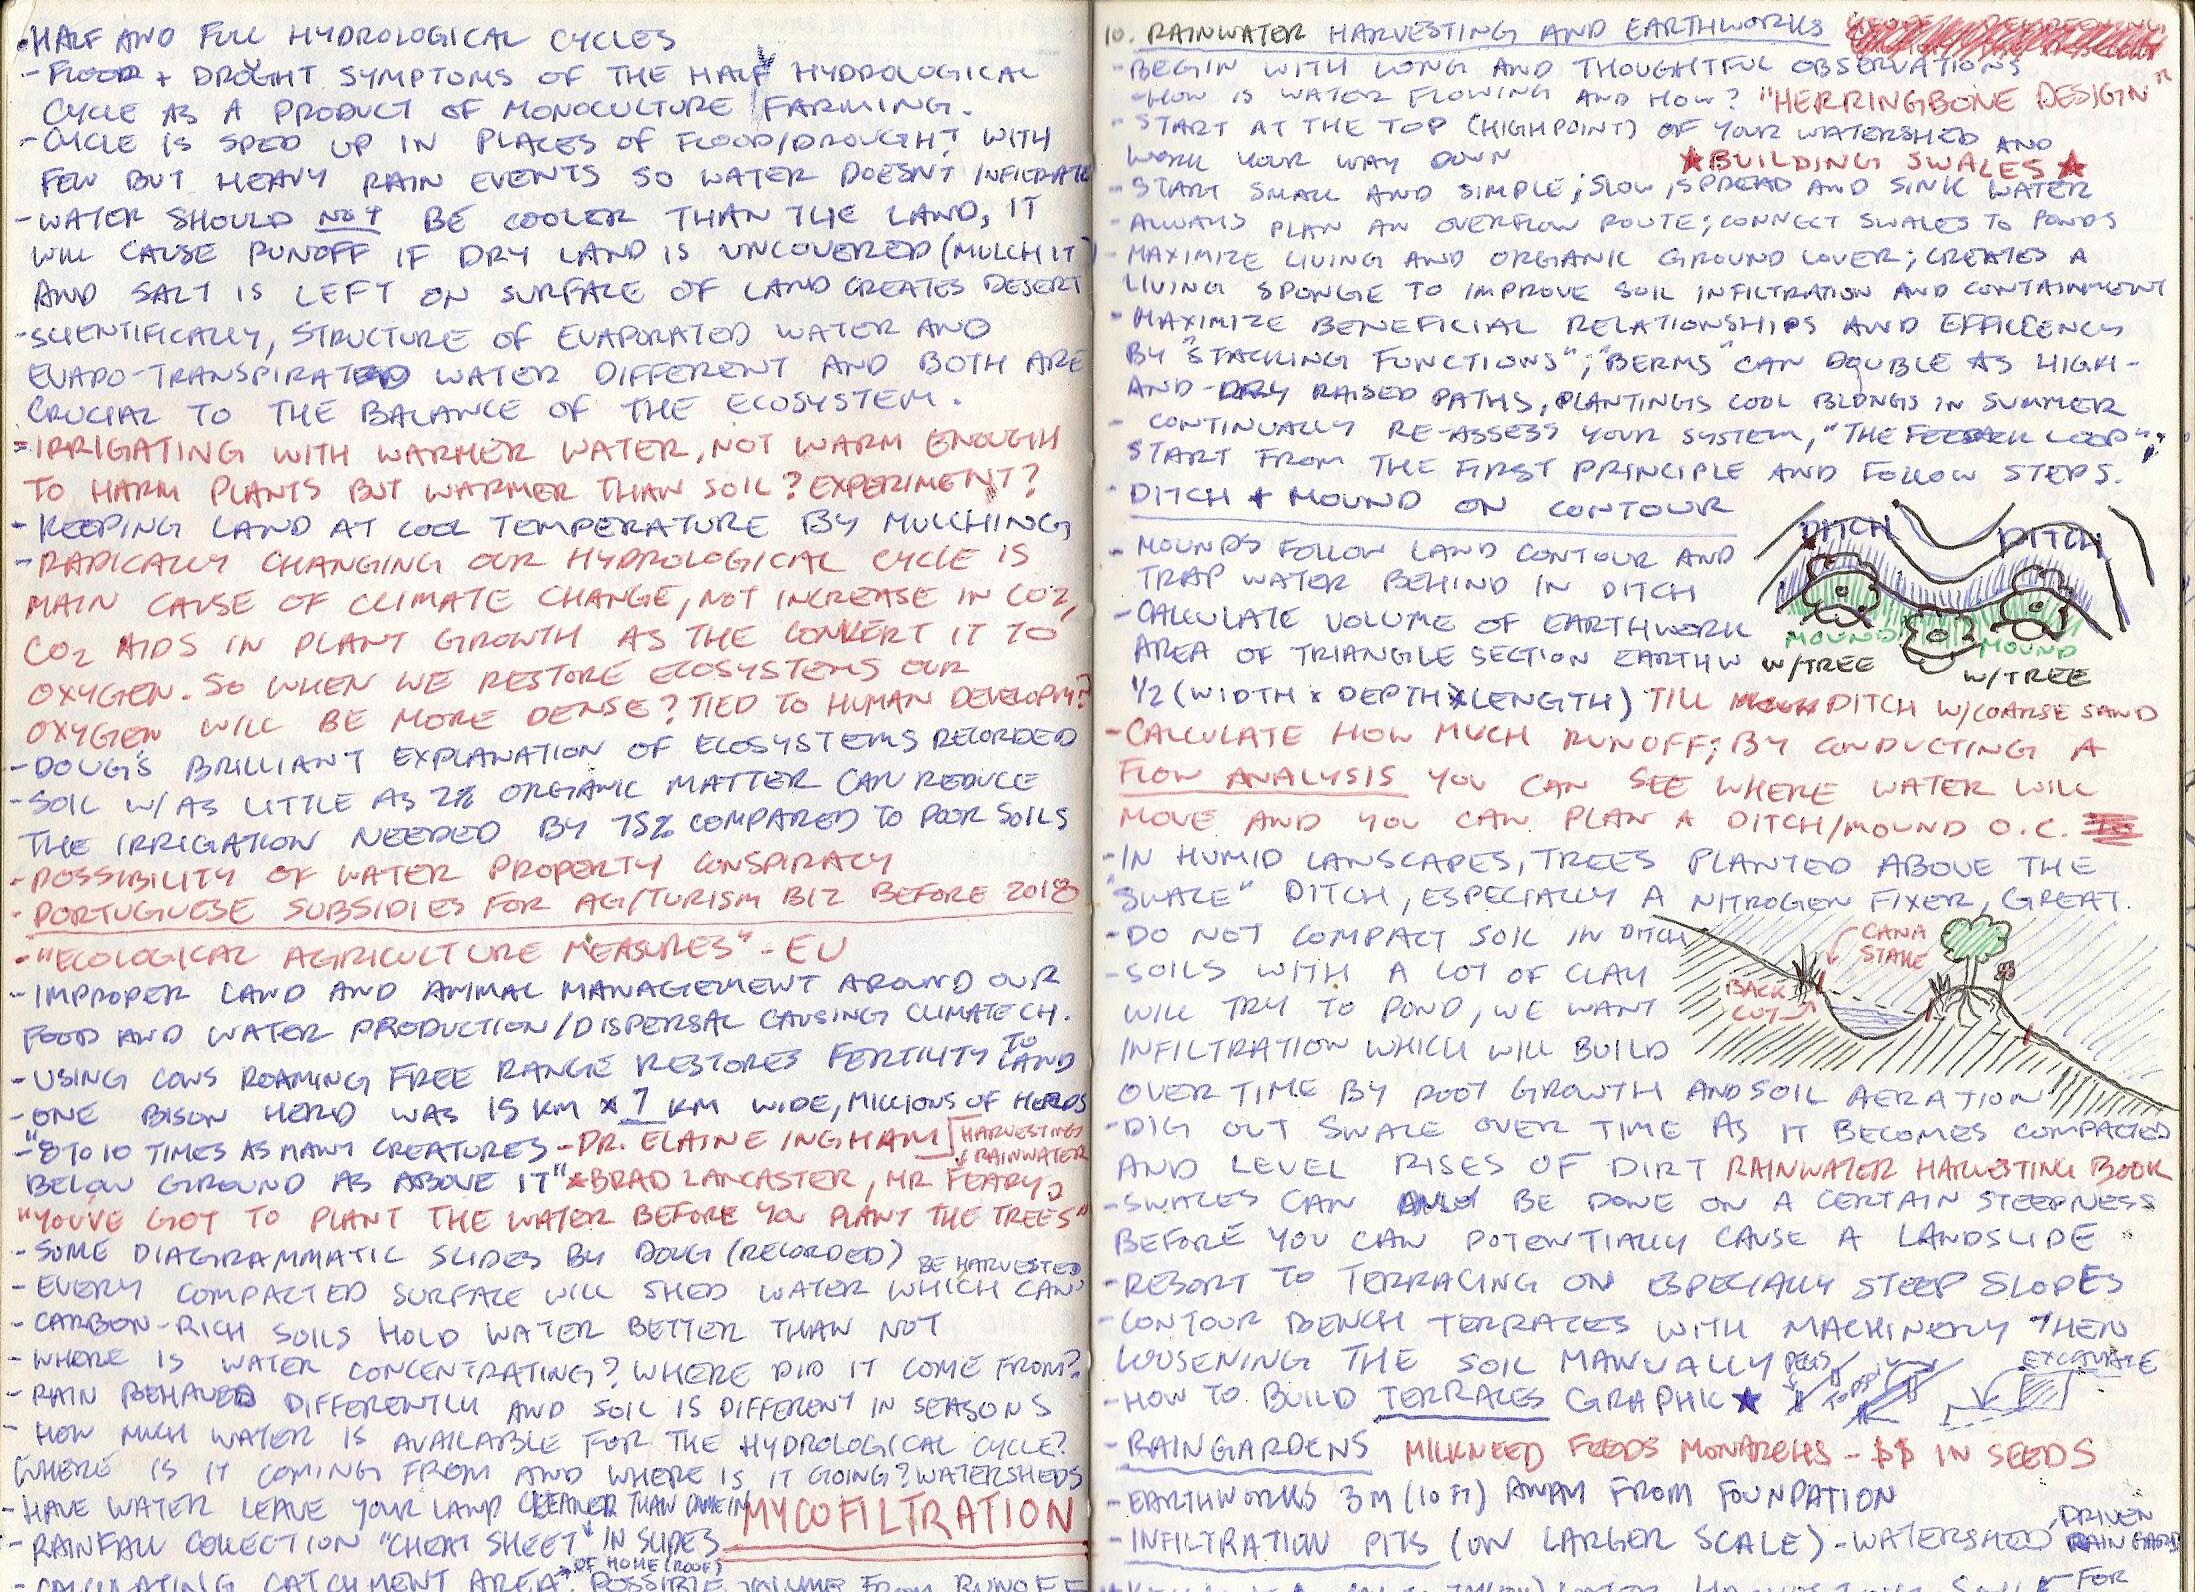 •HALF AND FULL HYDROLOGICAL CYCLES
-FLOOD + DROUGHT SYMPTOMS OF THE HALF HYDROLOGICAL
CYCLE AS A PRODUCT OF MONOCULTURE FARMING.
-CYCLE IS SPED UP IN PLACES OF FLOOD/DROUGHT? WITH
FEW BUT HEAVY RAIN EVENTS SO WATER DOESNT INFILTRATE
-WATER SHOULD NOT BE COOLER THAN THE LAND, IT
WILL CAUSE RUNOFF IF DRY LAND IS UNCOVERED (MULCH IT)
AND SALT IS LEFT ON SURFACE OF LAND CREATES DESERT
-SCIENTIFICALLY, STRUCTURE OF EVAPORATED WATER AND
EVAPO-TRANSPIRATED WATER DIFFERENT AND BOTH ARE
CRUCIAL TO THE BALANCE OF THE ECOSYSTEM.
-IRRIGATING WITH WARMER WATER, NOT WARM ENOUGH
TO HARM PLANTS BUT WARMER THAN SOIL? EXPERIMENT?
-KEEPING LAND AT COOL TEMPERATURE BY MULCHING,
-RADICALLY CHANGING OUR HYDROLOGICAL CYCLE IS
MAIN CAUSE OF CLIMATE CHANGE, NOT INCREASE IN CO2,
CO2 AIDS IN PLANT GROWTH AS THE CONVERT IT TO
OXYGEN. SO WHEN WE RESTORE ECOSYSTEMS OUR
OXYGEN WILL BE MORE DENSE? TIED TO HUMAN DEVELOPM?
-DOUG'S BRILLIANT EXPLANATION OF ECOSYSTEMS RECORDED
-SOIL W/AS LITTLE AS 2% ORGANIC MATTER CAN REDUCE
THE IRRIGATION NEEDED BY 75% COMPARED TO POOR SOILS
-POSSIBILITY OF WATER PROPERTY CONSPIRACY
-PORTUGUESE SUBSIDIES FOR AG/TURISM BIZ BEFORE 2018
-"ECOLOGICAL AGRICULTURE MEASURES" - EU
-IMPROPER LAND AND ANIMAL MANAGEMENT AROUND OUR
FOOD AND WATER PRODUCTION/DISPERSAL CAUSING CLIMATE CH.
-USING COWS ROAMING FREE RANGE RESTORES FERTILITY TO LAND
-ONE BISON HERD WAS 15 KM x 7 KM WIDE, MILLIONS OF HERDS
-"8 TO 10 TIMES AS MANY CREATURES -DR. ELAINE INGHAM [HARVESTING RAINWATER
BELOW GROUND AS ABOVE IT" *BRAD LANCASTER, MR FEARY,
"YOU'VE GOT TO PLANT THE WATER BEFORE YOU PLANT THE TREES"
-SOME DIAGRAMMATIC SLIDES BY DOUG (RECORDED)
-EVERY COMPACTED SURFACE WILL SHED WATER WHICH CAN BE HARVESTED
-CARBON-RICH SOILS HOLD WATER BETTER THAN NOT
-WHERE IS WATER CONCENTRATING? WHERE DID IT COME FROM?
-RAIN BEHAVES DIFFERENTLY AND SOIL IS DIFFERENT IN SEASONS
-HOW MUCH WATER IS AVAILABLE FOR THE HYDROLOGICAL CYCLE?
WHERE IS IT COMING FROM AND WHERE IS IT GOING? WATERSHEDS
-HAVE WATER LEAVE YOUR LAND CLEANER THAN CAME IN MYCOFILTRATION
-RAINFALL COLLECTION "CHEAT SHEET" IN SLIDES
OF HOME (ROOF)
-CALCULATING CATCHMENT AREA, POSSIBLE VOLUME FROM RUNOFF
10. RAINWATER HARVESTING AND EARTHWORKS
-BEGIN WITH LONG AND THOUGHTFUL OBSERVATIONS
-HOW IS WATER FLOWING AND HOW? "HERRINGBONE DESIGN"
-START AT THE TOP (HIGHPOINT) OF YOUR WATERSHED AND
WORK YOUR WAY DOWN ★BUILDING SWALES★
-START SMALL AND SIMPLE; SLOW, SPREAD AND SINK WATER
-ALWAYS PLAN AN OVERFLOW ROUTE; CONNECT SWALES TO PONDS
-MAXIMIZE LIVING AND ORGANIC GROUND COVER; CREATES A
LIVING SPONGE TO IMPROVE SOIL INFILTRATION AND CONTAINMENT
-MAXIMIZE BENEFICIAL RELATIONSHIPS AND EFFICENCY
BY "STACKING FUNCTIONS"; "BERMS" CAN DOUBLE AS HIGH-
AND-DRY RAISED PATHS, PLANTINGS COOL BLDNGS IN SUMMER
-CONTINUALLY RE-ASSESS YOUR SYSTEM, "THE FEEDBACK LOOP";
START FROM THE FIRST PRINCIPLE AND FOLLOW STEPS.
-DITCH + MOUND ON CONTOUR
DITCH DITCH
-MOUNDS FOLLOW LAND CONTOUR AND
TRAP WATER BEHIND IN DITCH
-CALCULATE VOLUME OF EARTHWORK
MOUND MOUND
AREA OF TRIANGLE SECTION EARTHW
W/TREE W/TREE
1/2 (WIDTH x DEPTH x LENGTH) TILL DITCH W/COARSE SAND
-CALCULATE HOW MUCH RUNOFF; BY CONDUCTING A
FLOW ANALYSIS YOU CAN SEE WHERE WATER WILL
MOVE AND YOU CAN PLAN A DITCH/MOUND O.C.
-IN HUMID LANSCAPES, TREES PLANTED ABOVE THE
"SWALE" DITCH, ESPECIALLY A NITROGEN FIXER, GREAT.
-DO NOT COMPACT SOIL IN DITCH
CANA STAKE
-SOILS WITH A LOT OF CLAY
BACK CUT
WILL TRY TO POND, WE WANT
INFILTRATION WHICH WILL BUILD
OVER TIME BY ROOT GROWTH AND SOIL AERATION
-DIG OUT SWALE OVER TIME AS IT BECOMES COMPACTED
AND LEVEL RISES OF DIRT RAINWATER HARVESTING BOOK
-SWALES CAN ONLY BE DONE ON A CERTAIN STEEPNESS
BEFORE YOU CAN POTENTIALLY CAUSE A LANDSLIDE
-RESORT TO TERRACING ON ESPECIALLY STEEP SLOPES
-CONTOUR BENCH TERRACES WITH MACHINERY THEN
LOOSENING THE SOIL MANUALLY PEGS EXCAVATE
-HOW TO BUILD TERRACES GRAPHIC ★
-RAINGARDENS MILKWEED FEEDS MONARCHS - $$ IN SEEDS
-EARTHWORKS 3M (10 FT) AWAY FROM FOUNDATION
-INFILTRATION PITS (ON LARGER SCALE) - WATERSHED DRIVEN